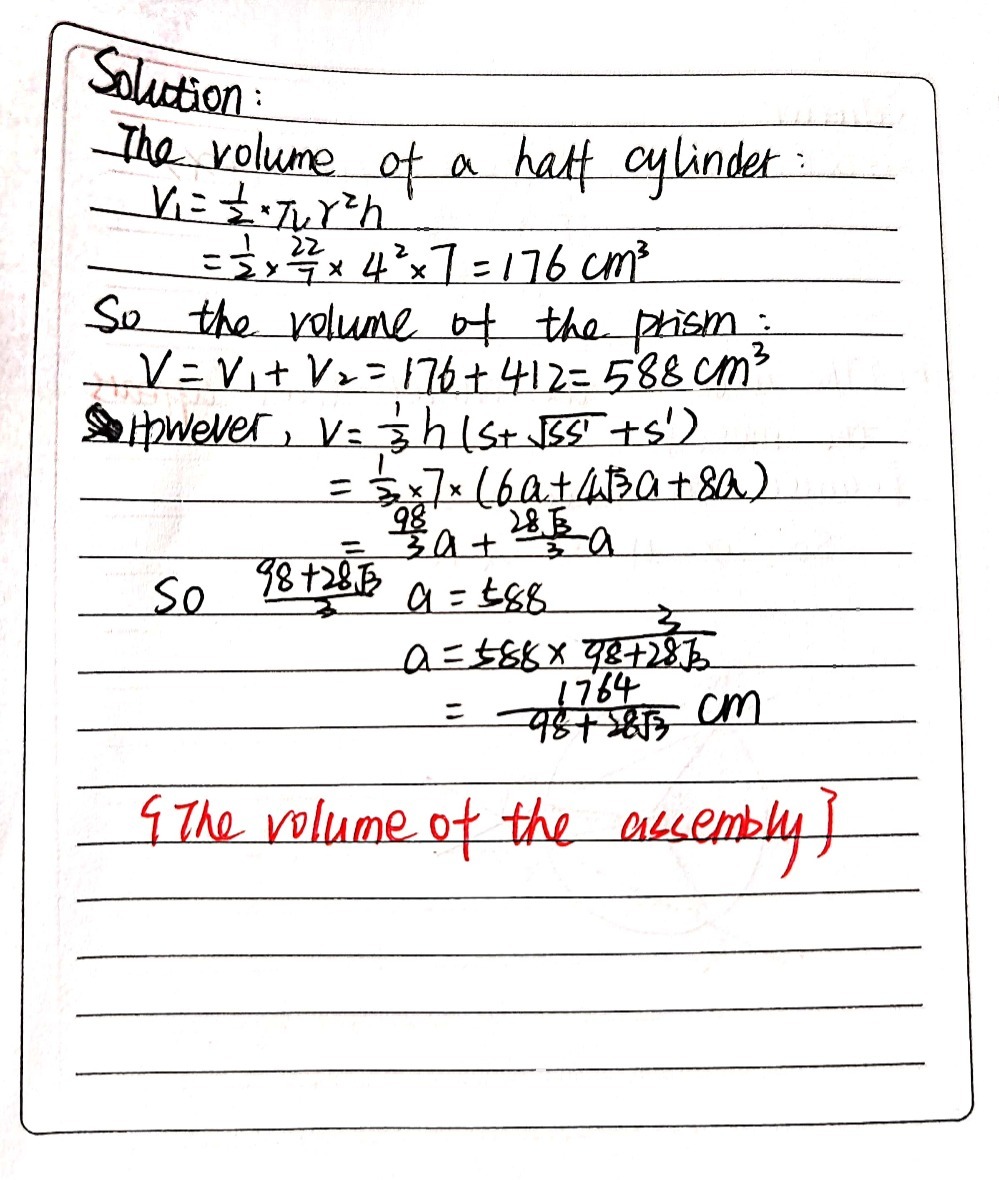 Solution:
The volume of a half cylinder:
V₁ = 1/2 × π r²h
= 1/2 × 22/7 × 4² × 7 = 176 cm³
So the volume of the prism:
V = V₁ + V₂ = 176 + 412 = 588 cm³
However, V = 1/3 h (s + √ss' + s')
= 1/3 × 7 × (6a + 4√3a + 8a)
= 98/3 a + 28√3/3 a
So (98+28√3)/3 a = 588
a = 588 × 3/(98+28√3)
= 1764/(98+28√3) cm
{The volume of the assembly}